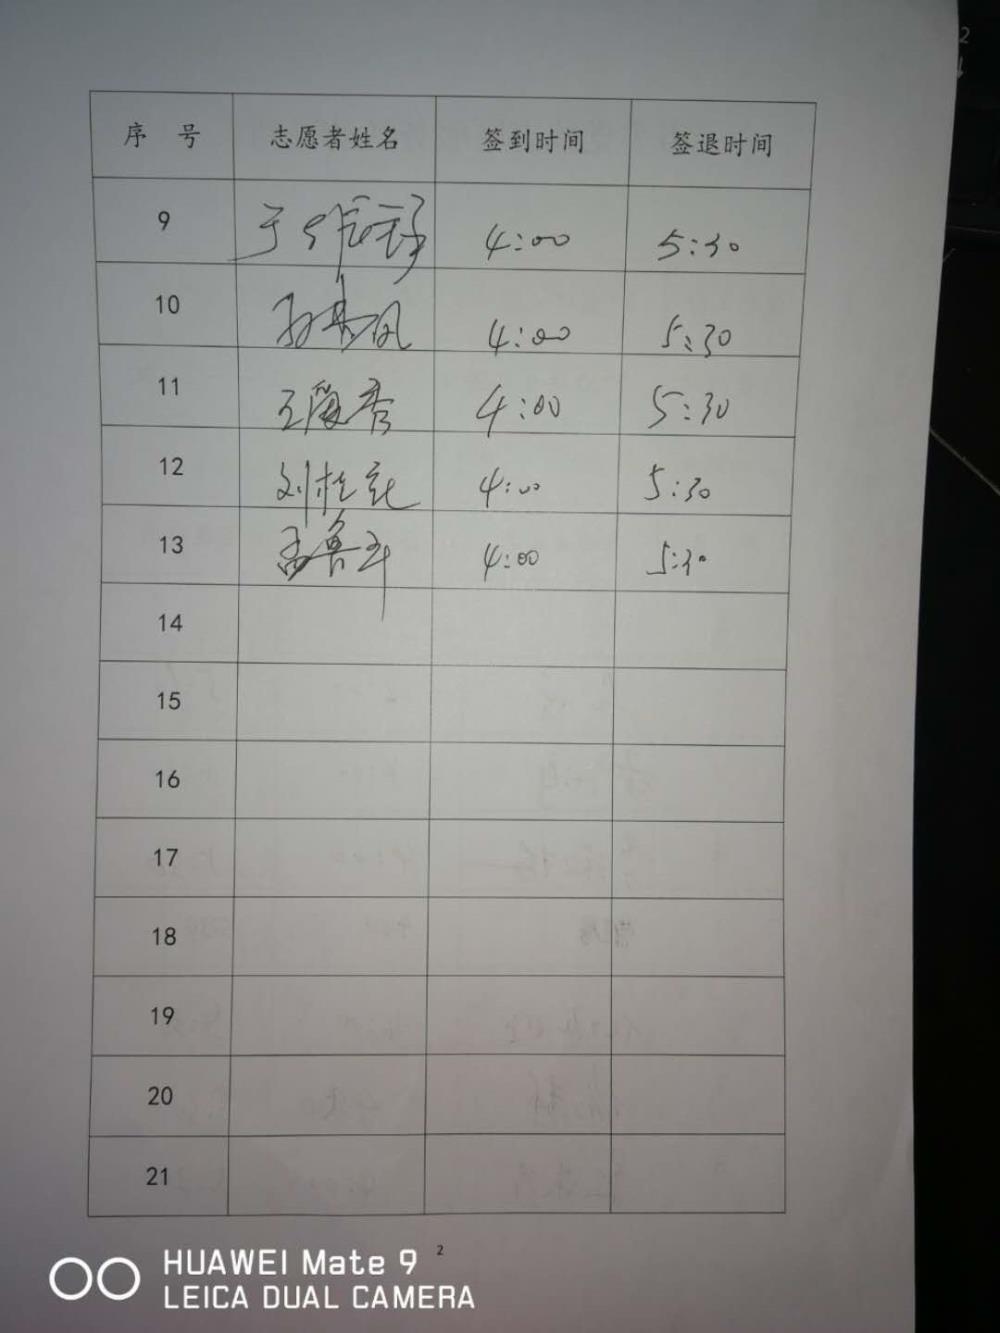 序 号 志愿者姓名 签到时间 签退时间
9 4:00 5:30
10 4:00 5:30
11 王海香 4:00 5:30
12 刘桂花 4:00 5:30
13 4:00 5:30
14
15
16
17
18
19
20
21
2
HUAWEI Mate 9
LEICA DUAL CAMERA